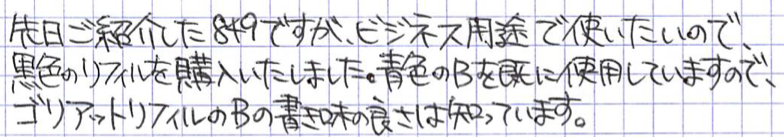 先日ご紹介した849ですが、ビジネス用途で使いたいので、
黒色のリフィルを購入いたしました。青色のBを既に使用していますので、
ゴリアットリフィルのBの書き味の良さは知っています。